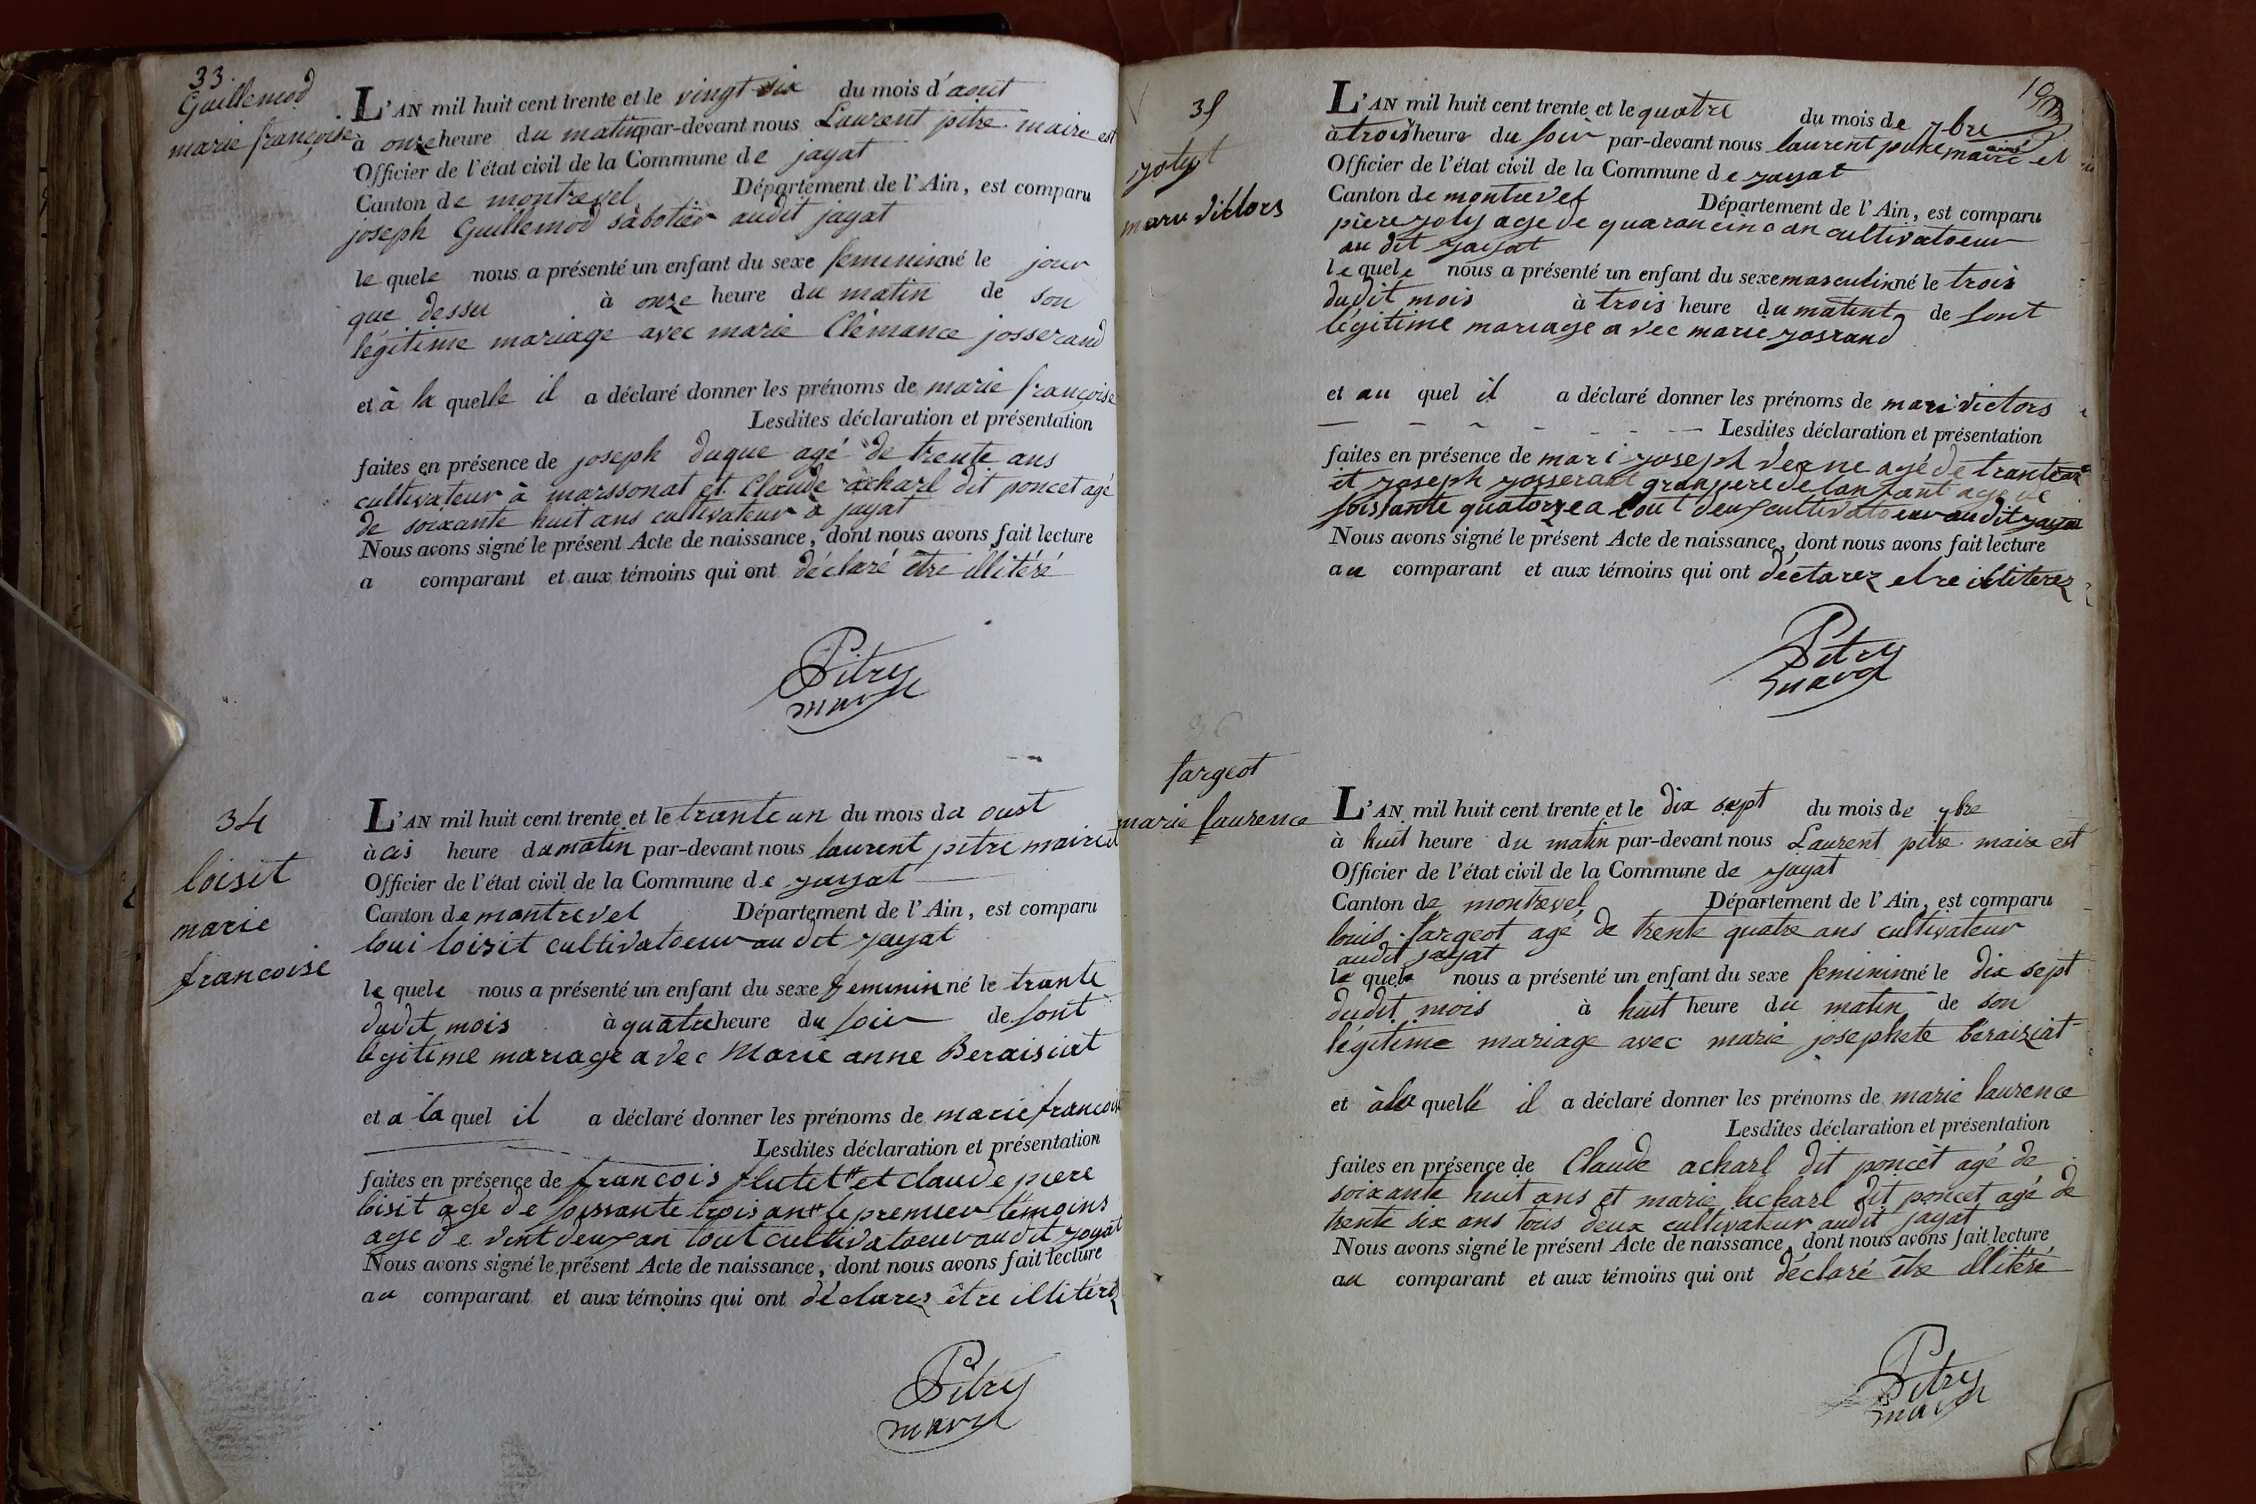 33.
Guillemod
marie françoise
L'AN mil huit cent trente et le vingt six du mois d'aout
à onze heure du matin par-devant nous Laurent pitre maire est
Officier de l'état civil de la Commune de jayat
Canton de montrevel Département de l'Ain, est comparu
joseph Guillemod sabotier audit jayat
le quele nous a présenté un enfant du sexe feminin né le jour
que dessu à onze heure du matin de son
légitime mariage avec marie Clémance josserand
et à la quelle il a déclaré donner les prénoms de marie françoise
Lesdites déclaration et présentation
faites en présence de joseph duque agé de trente ans
cultivateur à marssonat et Claude acharl dit poncet agé
de soixante huit ans cultivateur à jayat
Nous avons signé le présent Acte de naissance, dont nous avons fait lecture
a comparant et aux témoins qui ont déclaré être illitéré
Pitre
34
loisit
marie
francoise
L'AN mil huit cent trente et le trante un du mois da oust
à cis heure du matin par-devant nous laurent pitre maire et
Officier de l'état civil de la Commune de yayat
Canton de montrevel Département de l'Ain, est comparu
loui loisit cultivatoeur au dit yayat
le quele nous a présenté un enfant du sexe feminin né le trante
dudit mois à quatre heure du soir de sont
légitime mariage avec Marie anne Beraisiat
et a la quel il a déclaré donner les prénoms de marie francoise
Lesdites déclaration et présentation
faites en présence de francois flutet et claude piere
loisit age de soissante trois ant le premier témoins
age de vint deux an tout cultivatoeur au dit yoyat
Nous avons signé le présent Acte de naissance, dont nous avons fait lecture
au comparant et aux témoins qui ont déclarez être illitérez
Pitre
35
yoly
mari victors
19
L'AN mil huit cent trente et le quatre du mois de 7bre
à trois heure du soir par-devant nous laurent pitre maire et
Officier de l'état civil de la Commune de yayat
Canton de montrevel Département de l'Ain, est comparu
piere yoly age de quarancinc an cultivatoeur
au dit yayat
le quele nous a présenté un enfant du sexe masculin né le trois
dudit mois à trois heure du matint de sont
légitime mariage avec marie yosrand
et au quel il a déclaré donner les prénoms de mari victors
Lesdites déclaration et présentation
faites en présence de mari yoseph verne agé de trante an
et yoseph yosserant granpere de lanfant age de
soissante quatorze a tout deus cultivatoeur au dit yayat
Nous avons signé le présent Acte de naissance, dont nous avons fait lecture
au comparant et aux témoins qui ont déclarez etre illiterez
Pitre
36
fargeot
marie laurence
L'AN mil huit cent trente et le dix sept du mois de 7bre
à huit heure du matin par-devant nous Laurent pitre maire est
Officier de l'état civil de la Commune de jayat
Canton de montrevel Département de l'Ain, est comparu
louis fargeot agé de trente quatre ans cultivateur
audit jayat
le quele nous a présenté un enfant du sexe feminin né le dix sept
dudit mois à huit heure du matin de son
légitime mariage avec marie josephete béraiziat
et à la quelle il a déclaré donner les prénoms de marie laurence
Lesdites déclaration et présentation
faites en présence de Claude acharl dit poncet agé de
soixante huit ans et marie acharl dit poncet agé de
trente six ans tous deux cultivateur audit jayat
Nous avons signé le présent Acte de naissance, dont nous avons fait lecture
au comparant et aux témoins qui ont déclaré être illitéré
Pitre